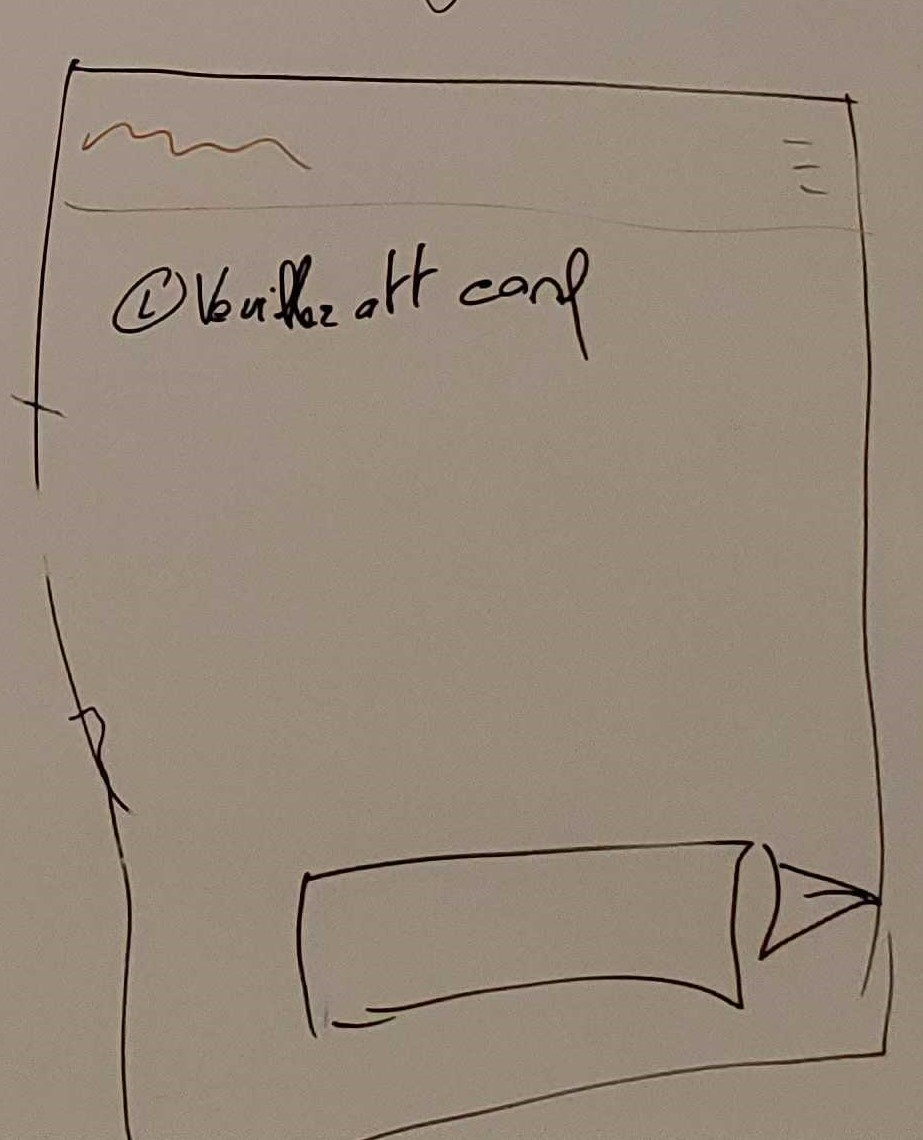 Veuillez att conf